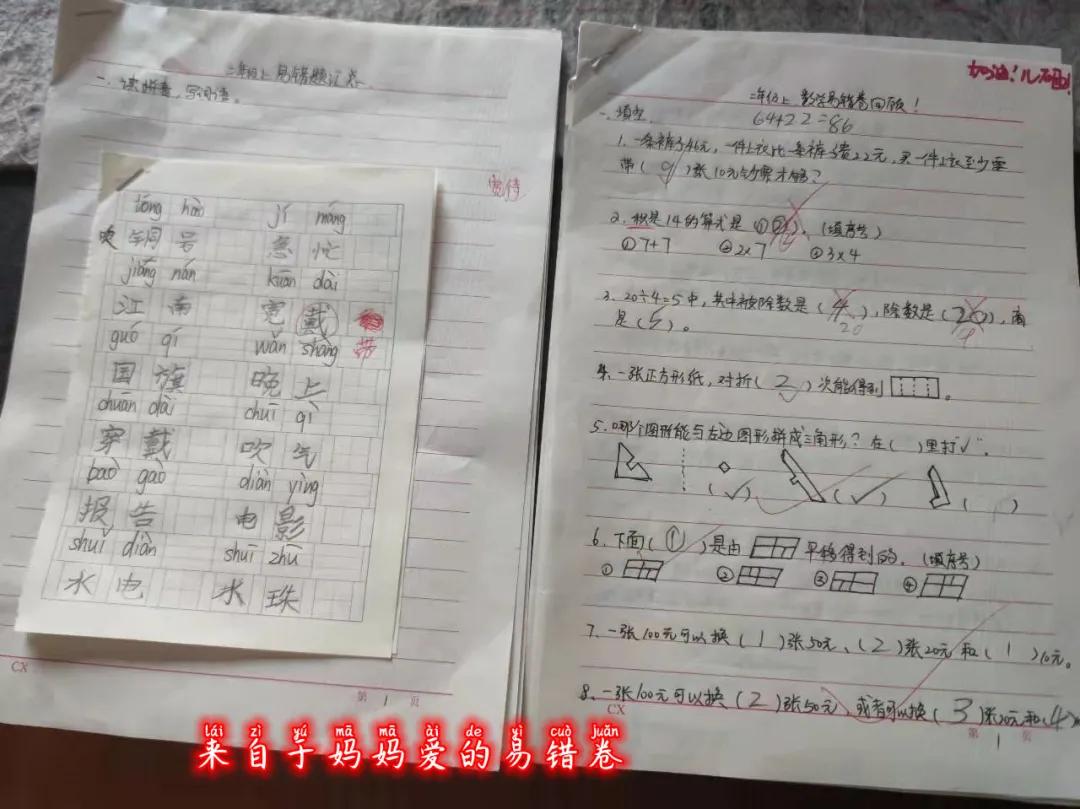 二年级上易错题汇卷
一、读拼音，写词语。
宽待
tóng hào jí máng
铜号 急忙
jiāng nán kuān dài
江南 宽戴
带
guó qí wǎn shàng
国旗 晚上
chuān dài chuī qì
穿戴 吹气
bào gào diàn yǐng
报告 电影
shuǐ diàn shuǐ zhū
水电 水珠
CX
第 1 页
加油！
二年级上数学易错卷回顾！
64+22=86
一、填空
1、一条裤子46元，一件上衣比一条裤子贵22元，买一件上衣至少要
带（9）张10元钞票才够？
2、积是14的算式是（①②）。（填序号）
①7+7 ②2×7 ③3×4
3、20÷4=5中，其中被除数是（4），除数是（20），商
20 4
是（5）。
4、一张正方形纸，对折（2）次能得到。
5、哪个图形能与左边图形拼成三角形？在（ ）里打"√"。
（√） （√） （ ）
6、下面（①）是由平移得到的。（填序号）
① ② ③ ④
7、一张100元可以换（1）张50元、（2）张20元和（1）10元。
8、一张100元可以换（2）张50元，或者可以换（3）张20元和（4）
CX
第 1 页
lái zì yú mā mā ài de yì cuò juǎn
来自于妈妈爱的易错卷